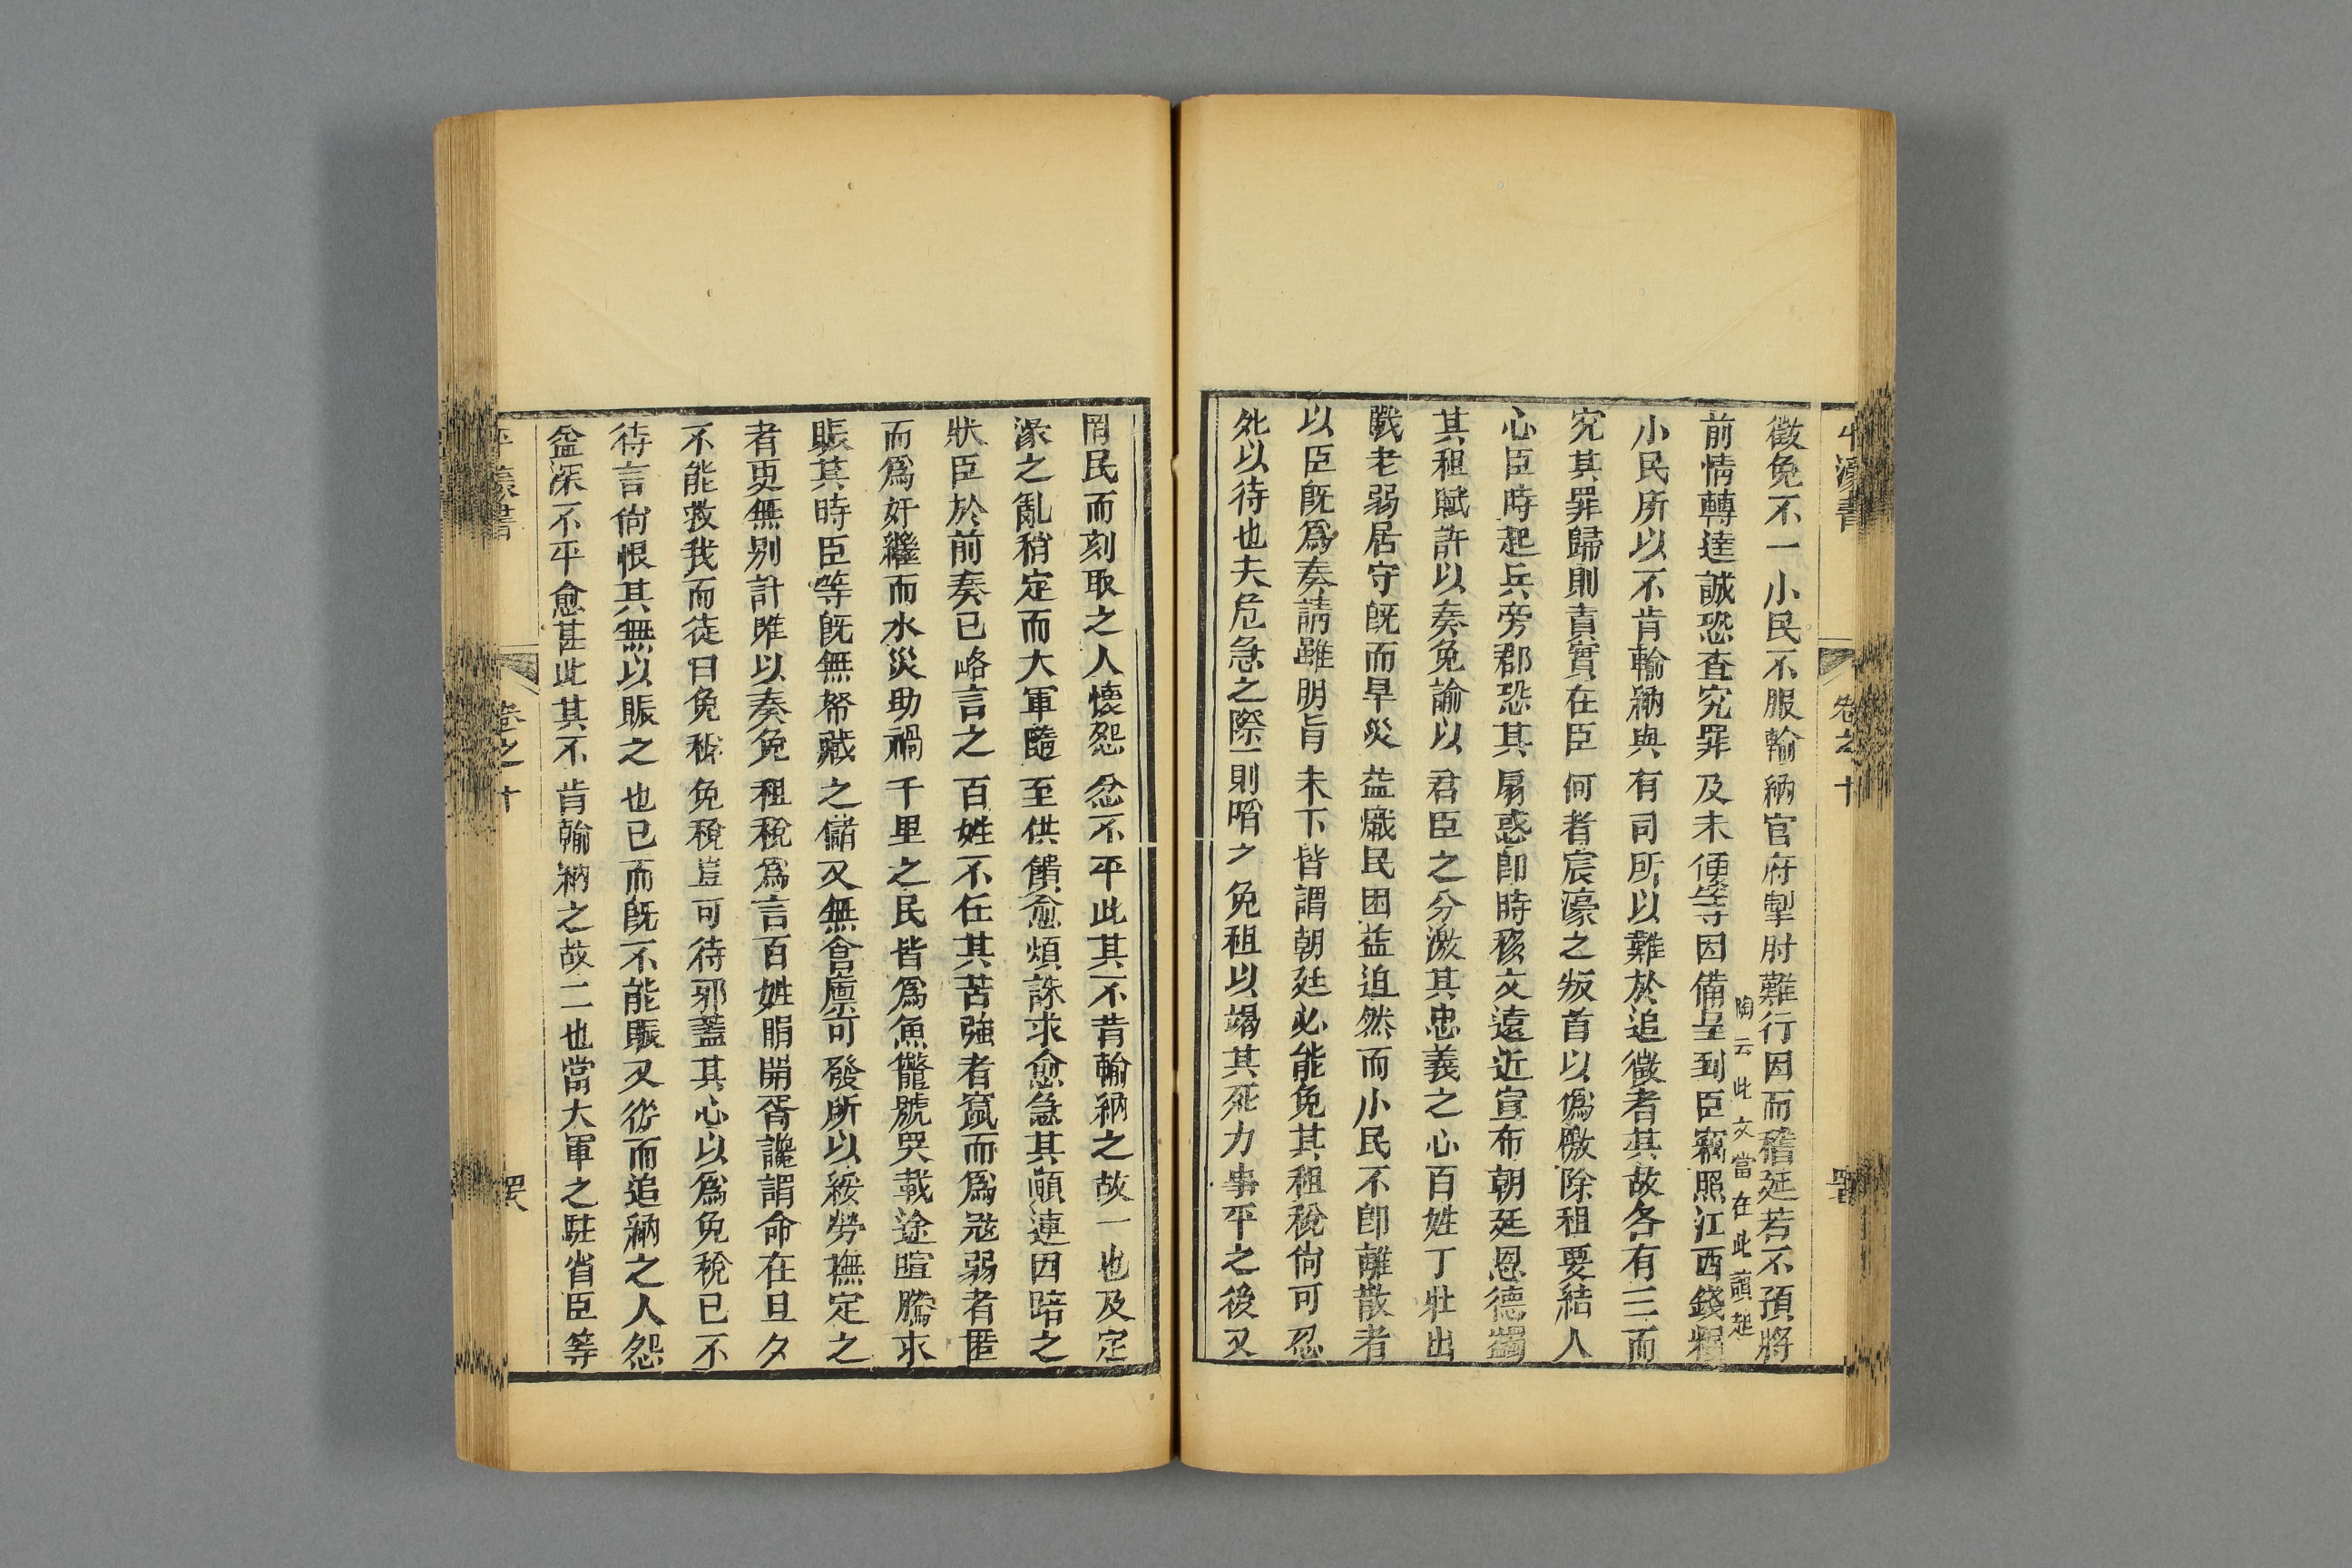 平濠書 卷之十
徵免不一小民不服輸納官府掣肘難行因而稽延若不預將
前情轉達誠恐查究罪及未便等因備呈到臣竊照江西錢糧
陶云此文當在此讀起
小民所以不肯輸納與有司所以難於追徵者其故各有三而
究其罪歸則責實在臣何者宸濠之叛首以僞檄除租要結人
心臣時起兵旁郡恐其扇惑卽時移文遠近宣布朝廷恩德蠲
其租賦許以奏免諭以君臣之分激其忠義之心百姓丁壯出
戰老弱居守旣而旱災益熾民困益迫然而小民不卽離散者
以臣旣爲奏請雖明旨未下皆謂朝廷必能免其租稅尙可忍
死以待也夫危急之際則啗之免租以竭其死力事平之後又
罔民而刻取之人懷怨忿不平此其不肯輸納之故一也及定
濠之亂稍定而大軍隨至供饋愈煩誅求愈急其顚連困踣之
狀臣於前奏已略言之百姓不任其苦強者竄而爲寇弱者匿
而爲奸繼而水災助禍千里之民皆爲魚鼈號哭載途喧騰求
賑其時臣等旣無帑藏之儲又無倉廩可發所以綏勞撫定之
者更無别計唯以奏免租稅爲言百姓睊睊胥讒謂命在旦夕
不能救我而徒曰免稅免稅豈可待邪蓋其心以爲免稅已不
待言尙恨其無以賑之也已而旣不能賑又從而追納之人怨
益深不平愈甚此其不肯輸納之故二也當大軍之駐省臣等
平濠書 卷之十